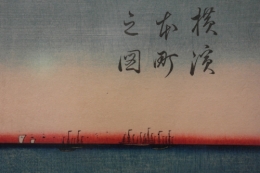 横濱
本町
之圖